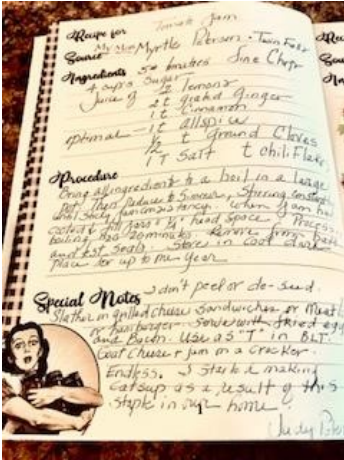 Recipe for Tomato Jam
Source My Mom Myrtle Peterson - Twin Falls
Ingredients 5# tomatoes fine chop
4 cups sugar
Juice of 2 lemons
2 t grated ginger
1 t cinnamon
optimal - 1 t allspice
1/2 t Ground Cloves
1 T Salt t chili Flake
Procedure
Bring all ingredients to a boil in a large
pot. Then reduce to simmer, stirring constantly
until sticky jam consistency. when jam has
cooled fill jars 1/4" head space. Process
boiling 20 minutes. Remove from
and test seals. Store in cool dark
place for up to one year
Special Notes I don't peel or de-seed.
Slather on grilled cheese sandwiches or Meatl
or hamburger. Serve with fried egg
and Bacon. Use as "T" in BLT.
Goat Cheese & jam on a cracker.
Endless. I started making
Catsup as a result of this
staple in our home
Judy